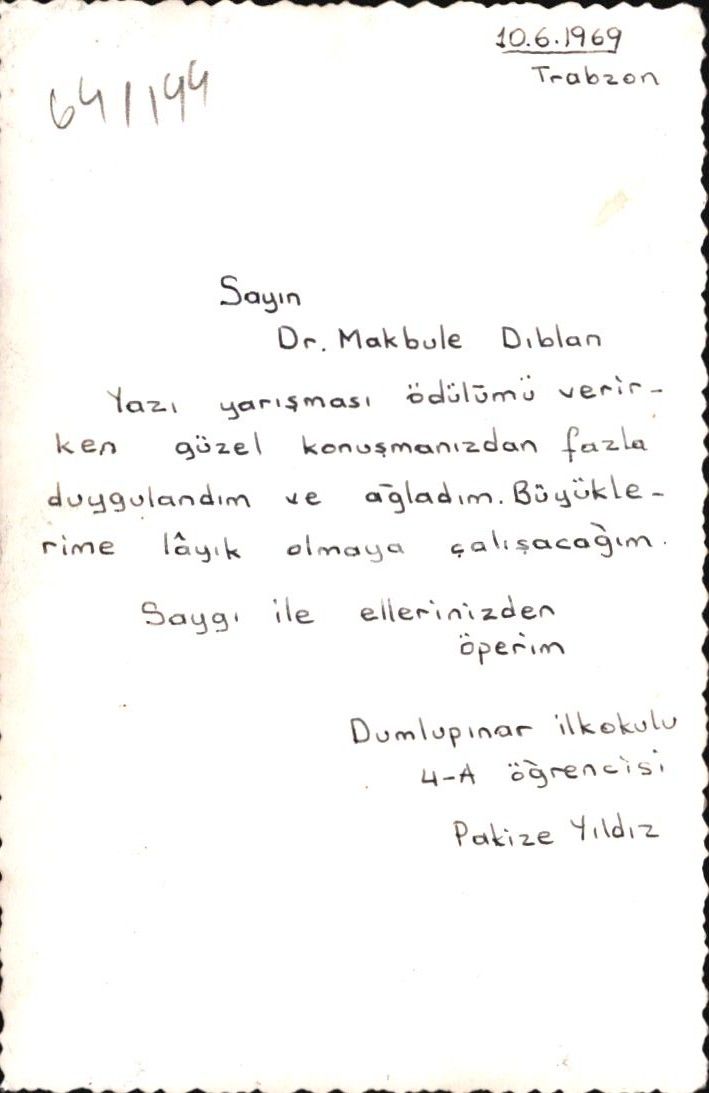 10.6.1969
Trabzon
64/144
Sayın
Dr. Makbule Dıblan
Yazı yarışması ödülümü verir-
ken güzel konuşmanızdan fazla
duygulandım ve ağladım. Büyükle-
rime lâyık olmaya çalışacağım.
Saygı ile ellerinizden
öperim
Dumlupınar ilkokulu
4-A öğrencisi
Pakize Yıldız